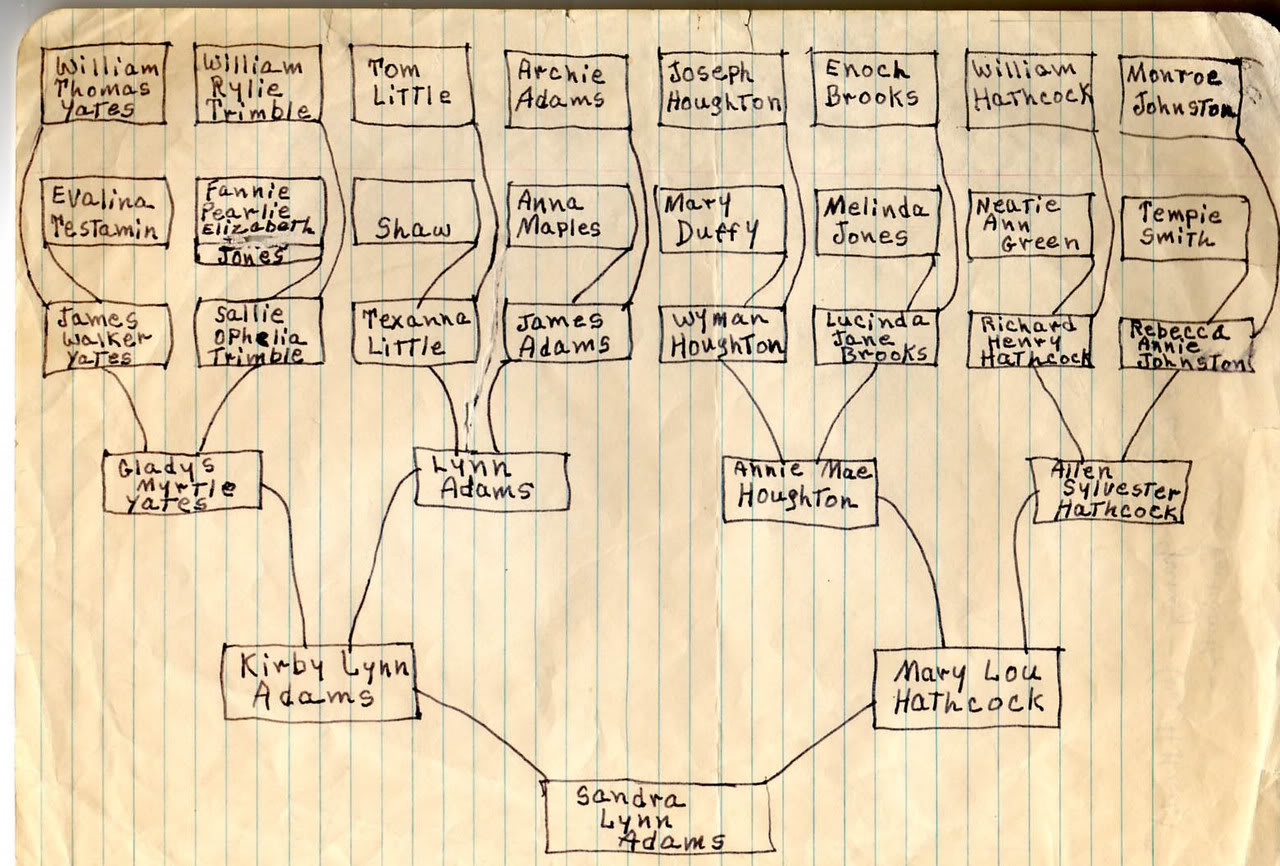 William
Thomas
Yates
William
Rylie
Trimble
Tom
Little
Archie
Adams
Joseph
Houghton
Enoch
Brooks
William
Hathcock
Monroe
Johnston
Evalina
Testamin
Fannie
Pearlie
Elizabeth
Jones
Shaw
Anna
Maples
Mary
Duffy
Melinda
Jones
Neatie
Ann
Green
Tempie
Smith
James
Walker
Yates
Sallie
Ophelia
Trimble
Texanna
Little
James
Adams
Wyman
Houghton
Lucinda
Jane
Brooks
Richard
Henry
Hathcock
Rebecca
Annie
Johnston
Gladys
Myrtle
Yates
Lynn
Adams
Annie Mae
Houghton
Allen
Sylvester
Hathcock
Kirby Lynn
Adams
Mary Lou
Hathcock
Sandra
Lynn
Adams